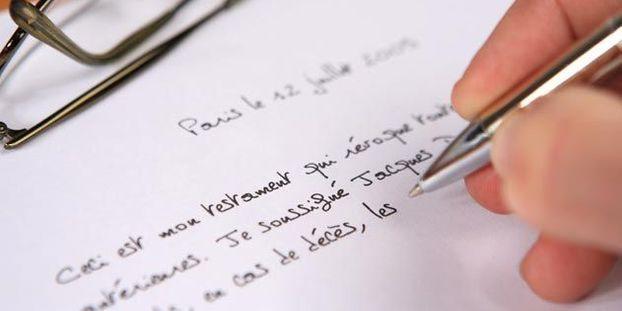 Paris le 12 juillet 2005
Ceci est mon testament qui révoque tout
antérieures. Je soussigné Jacques D
en cas de décès, les